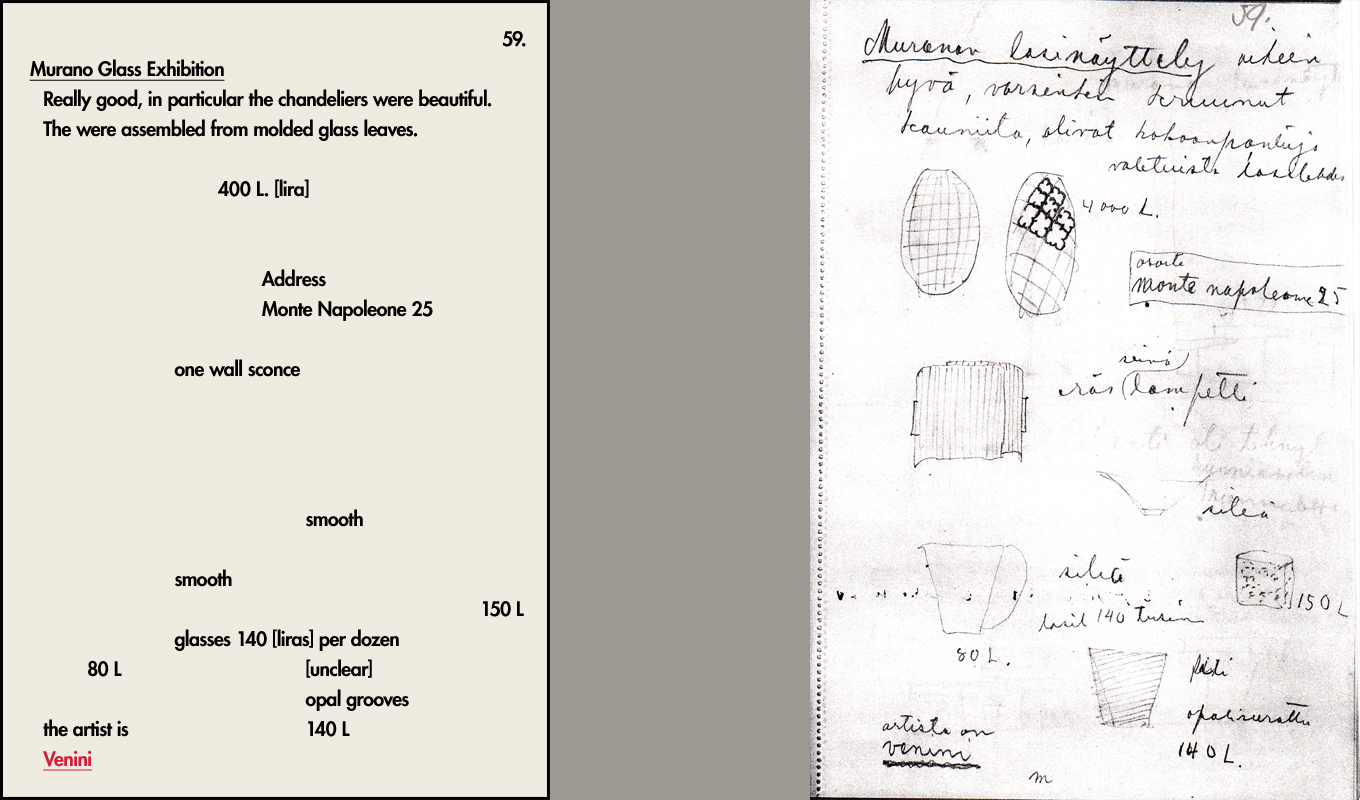 59.
Murano Glass Exhibition
Really good, in particular the chandeliers were beautiful.
The were assembled from molded glass leaves.
400 L. [lira]
Address
Monte Napoleone 25
one wall sconce
smooth
smooth
150 L
glasses 140 [liras] per dozen
80 L
[unclear]
opal grooves
the artist is
140 L
Venini
59.
Muranon lasinäyttely oikein
hyvä, varsinkin kruunut
kauniita, olivat kokoonpantuja
valetuista
4000 L.
osoite
monte napoleone 25
seinä
lampetti
sileä
sileä
150 L
lasit 140
80 L.
140 L.
artista on
venini
m